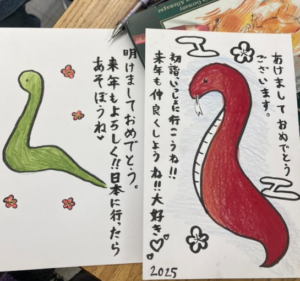 明けましておめでとう。
来年もよろしく!!日本に行ったら
あそぼうね♥
あけまして おめでとう
ございます。
初詣いっしょに行こうね!!
来年も仲良くしようね!!大好き♡
2025